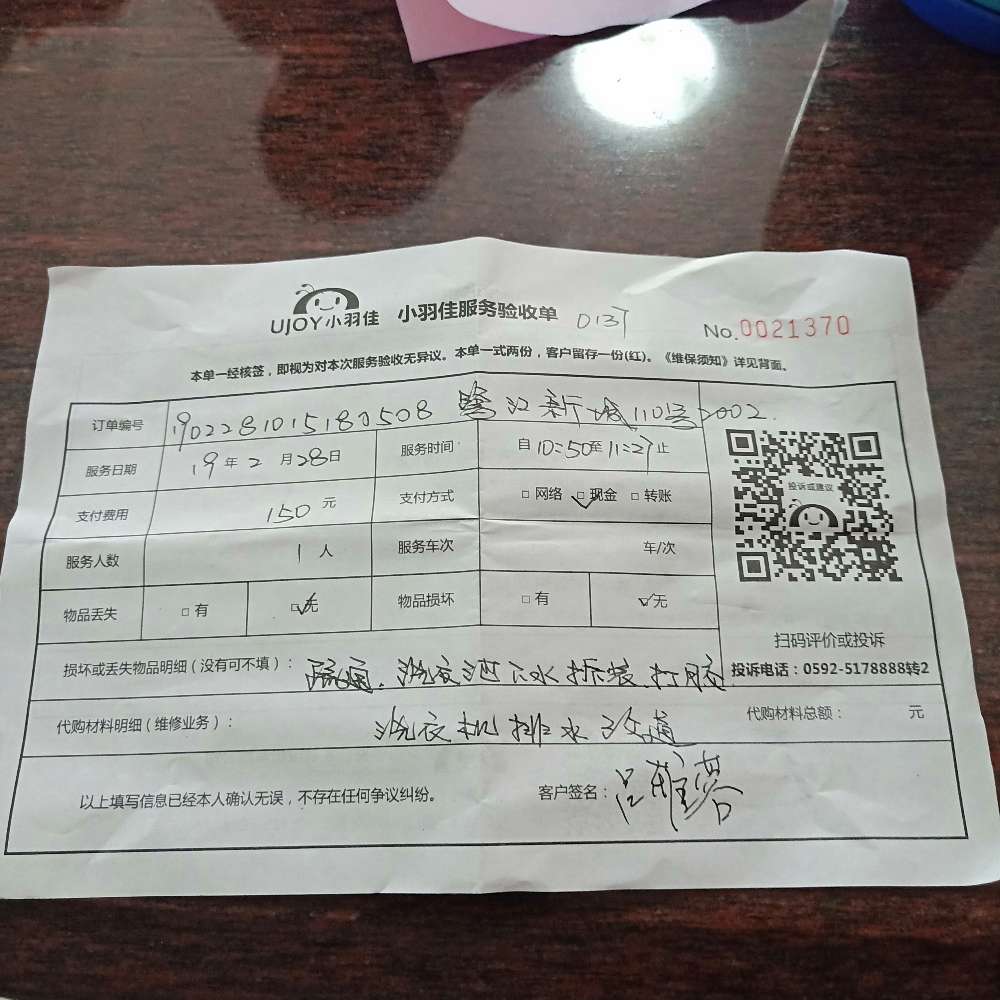 UJOY小羽佳 小羽佳服务验收单 No.0021370
本单一经核签，即视为对本次服务验收无异议。本单一式两份，客户留存一份(红)。《维保须知》详见背面。
订单编号 1902281015180508 鹭江新城110号2002.
服务日期 19年2月28日 服务时间 自10:50至11:27止
支付费用 150元 支付方式 □网络 □现金 □转账
投诉或建议
服务人数 1人 服务车次 车/次
物品丢失 □有 □无 物品损坏 □有 □无
扫码评价或投诉
投诉电话：0592-5178888转2
损坏或丢失物品明细（没有可不填）： 疏通、洗衣池下水拆装、打胶
代购材料明细（维修业务）： 洗衣机排水改道 代购材料总额： 元
以上填写信息已经本人确认无误，不存在任何争议纠纷。 客户签名： 吕雅蓉